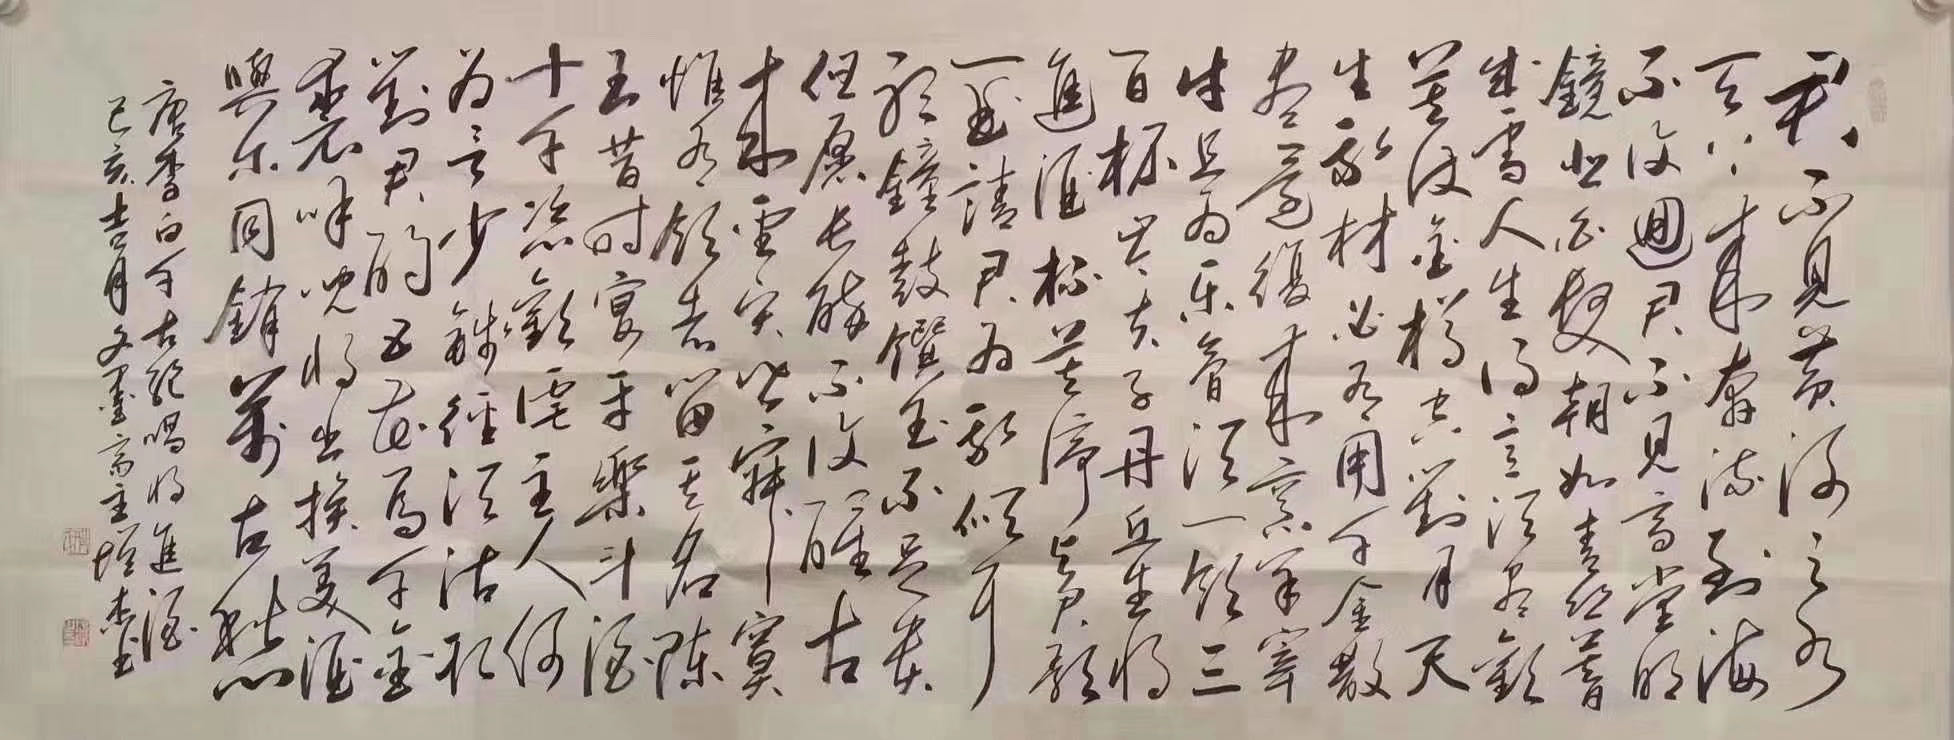 君不見黃河之水
天上來奔流到海
不復迴君不見高堂明
鏡悲白髮朝如青絲暮
成雪人生得意須盡歡
莫使金樽空對月天
生我材必有用千金散
盡還復來烹羊宰
牛且為樂會須一飲三
百杯岑夫子丹丘生將
進酒杯莫停與君歌
一曲請君為我傾耳
聽鐘鼓饌玉不足貴
但願長醉不復醒古
來聖賢皆寂寞
惟有飲者留其名陳
王昔時宴平樂斗酒
十千恣歡謔主人何
為言少錢徑須沽取
對君酌五花馬千金
裘呼兒將出換美酒
與爾同銷萬古愁
唐李白千古絕唱將進酒
己亥吉月文墨齋主增杰書